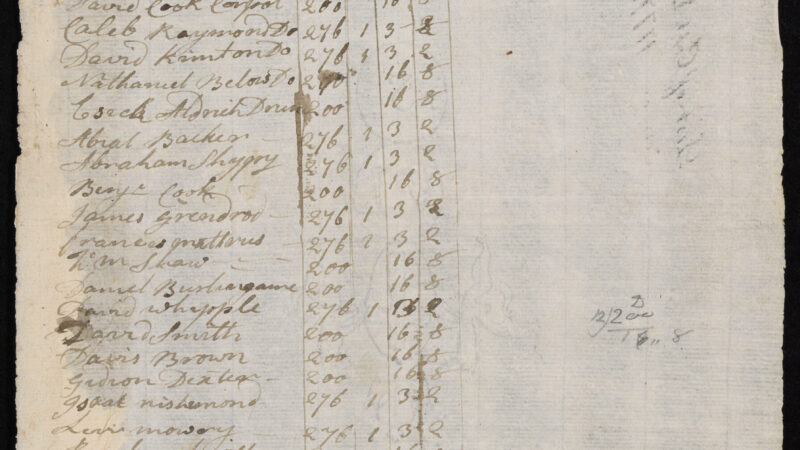 David Cook Corpol 200 16 8
Caleb Raymond Do 276 1 3 2
David Kinnton Do 276 1 3 2
Nathaniel Belows Do 200 16 8
Aldrich Drum 200 16 8
Abial Backer 276 1 3 2
Abraham Shyppy 276 1 3 2
Benja Cook 200 16 8
James Grendrod 276 1 3 2
Frances mathrus 276 1 3 2
Wm Shaw 200 16 8
Daniel Burlingame 200 16 8
David Whypple 276 1 3 2
David Smith 200 16 8
Davis Brown 200 16 8
Gidion Dexter 200 16 8
Isaac 276 1 3 2
Levi mowery 276 1 3 2
D
12)200
16,, 8